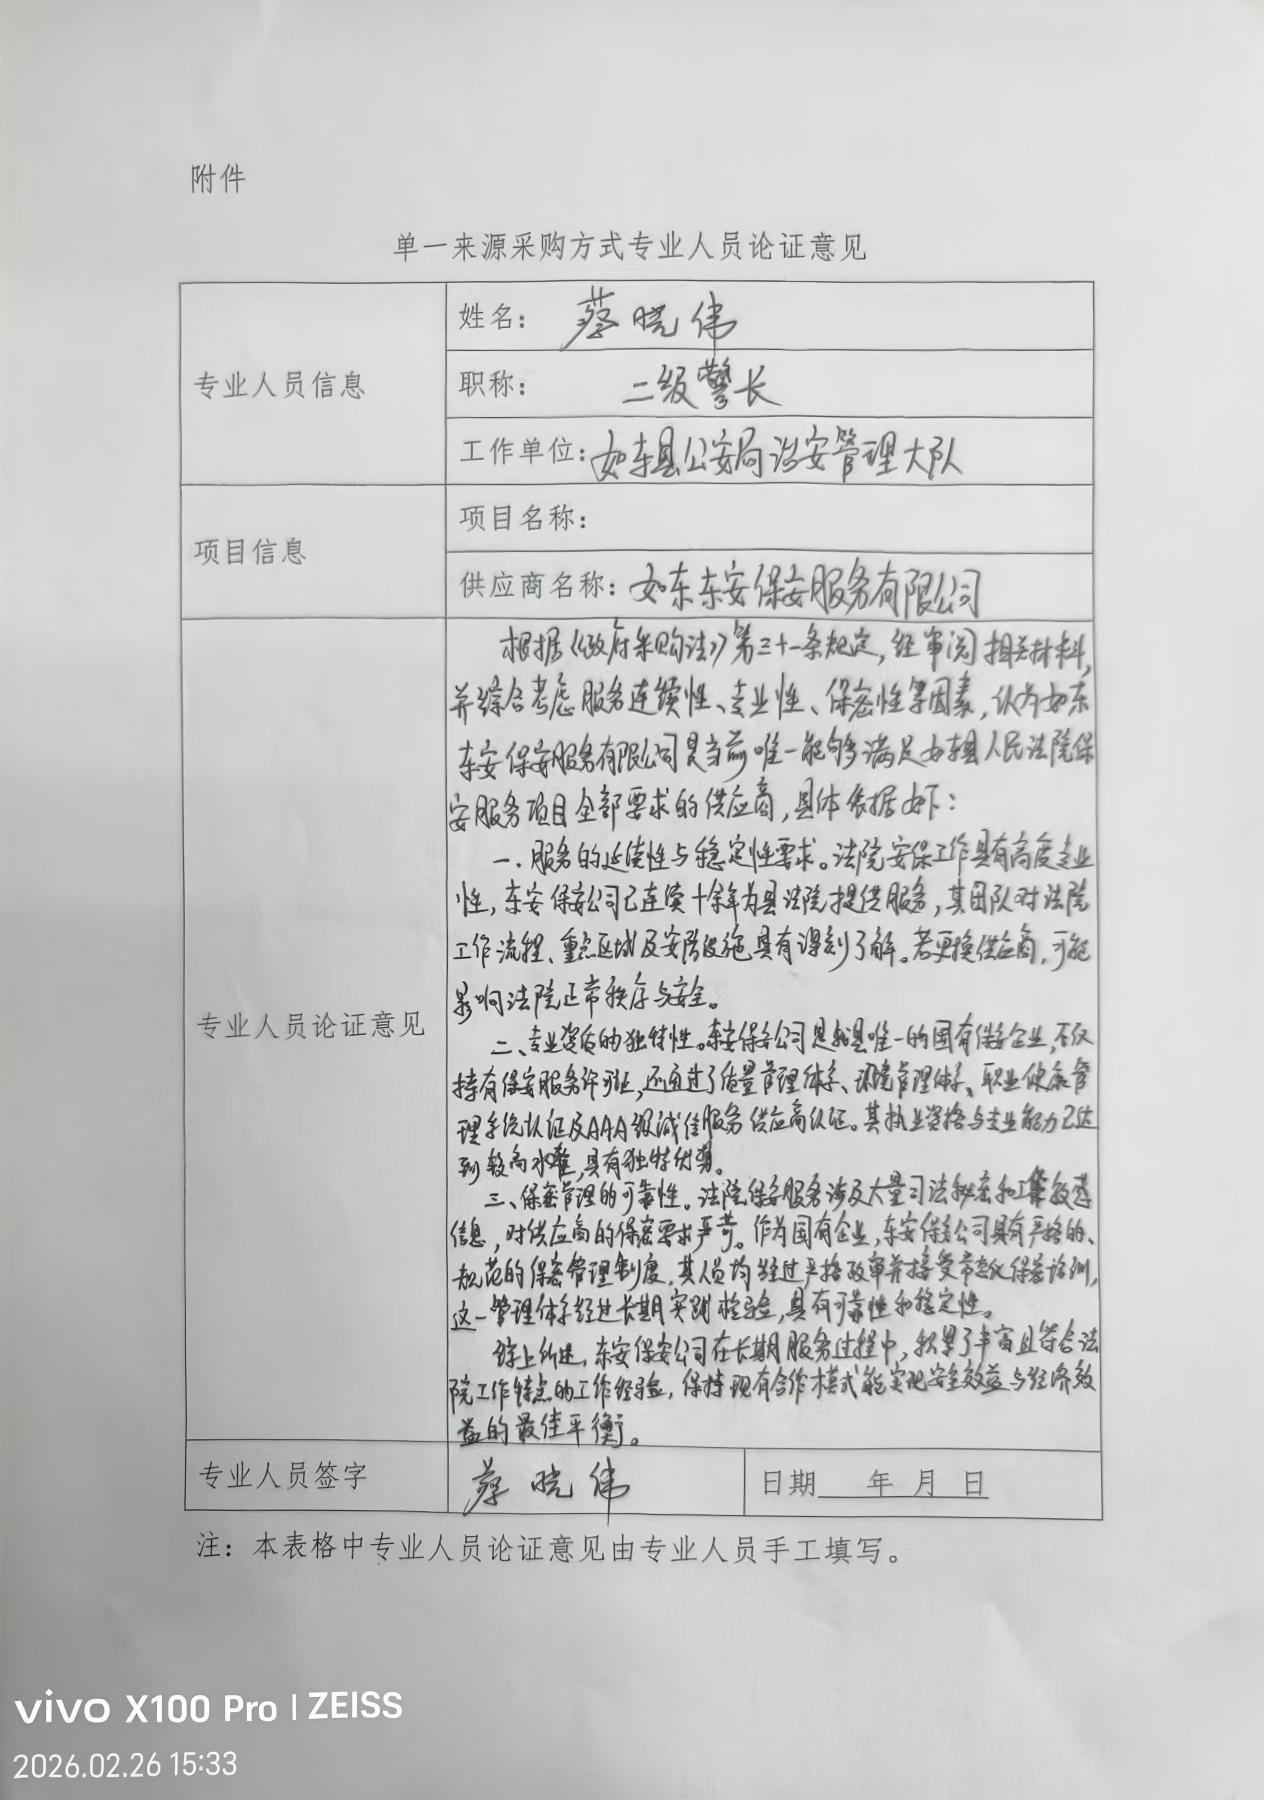 附件
单一来源采购方式专业人员论证意见
专业人员信息
姓名：蔡晓伟
职称：二级警长
工作单位：如东县公安局治安管理大队
项目信息
项目名称：
供应商名称：如东东安保安服务有限公司
专业人员论证意见
根据《政府采购法》第三十一条规定，经审阅相关材料，
并综合考虑服务连续性、专业性、保密性等因素，认为如东
东安保安服务有限公司是当前唯一能够满足如东县人民法院保
安服务项目全部要求的供应商，具体依据如下：
一、服务的延续性与稳定性要求。法院安保工作具有高度专业
性，东安保安公司已连续十余年为县法院提供服务，其团队对法院
工作流程、重点区域及安防设施具有深刻了解。若更换供应商，可能
影响法院正常秩序与安全。
二、专业资质的独特性。东安保安公司是我县唯一的国有保安企业，不仅
持有保安服务许可证，还通过了质量管理体系、环境管理体系、职业健康管
理系统认证及AAA级诚信服务供应商认证。其执业资格与专业能力已达
到较高水准，具有独特优势。
三、保密管理的可靠性。法院保安服务涉及大量司法秘密和敏感
信息，对供应商的保密要求严苛。作为国有企业，东安保安公司具有严格的、
规范的保密管理制度，其人员均经过严格政审并接受常态化保密培训，
这一管理体系经过长期实践检验，具有可靠性和稳定性。
综上所述，东安保安公司在长期服务过程中，积累了丰富且符合法
院工作特点的工作经验，保持现有合作模式能实现安全效益与经济效
益的最佳平衡。
专业人员签字
蔡晓伟
日期 年 月 日
注：本表格中专业人员论证意见由专业人员手工填写。
vivo X100 Pro | ZEISS
2026.02.26 15:33